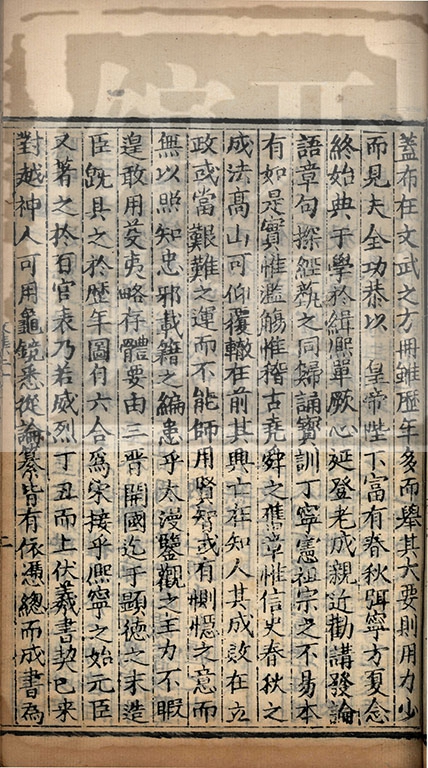 蓋布在文武之方冊雖歴年多而舉其大要則用力少
而見夫全功恭以　皇帝陛下富有春秋弭寧方夏念
終始典于學於緝熙單厥心延登老成親近勸講發論
語章句探經藝之同歸誦寶訓丁寧憲祖宗之不易本
有如是實惟濫觴惟稽古堯舜之舊章惟信史春秋之
成法髙山可仰覆轍在前其興亡在知人其成敗在立
政或當艱難之運而不能師用賢智或有惻㥯之意而
無以照知忠邪載籍之編患乎太漫鑒觀之主力不暇
遑敢用芟夷略存體要由三晋開國迄于顯德之末造
臣既具之於歴年圖自六合爲宋接乎熙寧之始元臣
又著之於百官表乃若威烈丁丑而上伏羲書契已来
對越神人可用龜鏡悉從論纂皆有依憑緫而成書爲
二